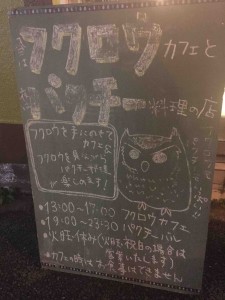 フクロウカフェと
パクチー料理の店
フクロウを手にのせて
カフェ&
フクロウを見ながら
パクチー料理
が楽しめます!
●13:00~17:00 フクロウカフェ
●19:00~23:30 パクチーバル
●火曜休み(火曜祝日の場合は
営業いたします)
●カフェの時は お食事はできません